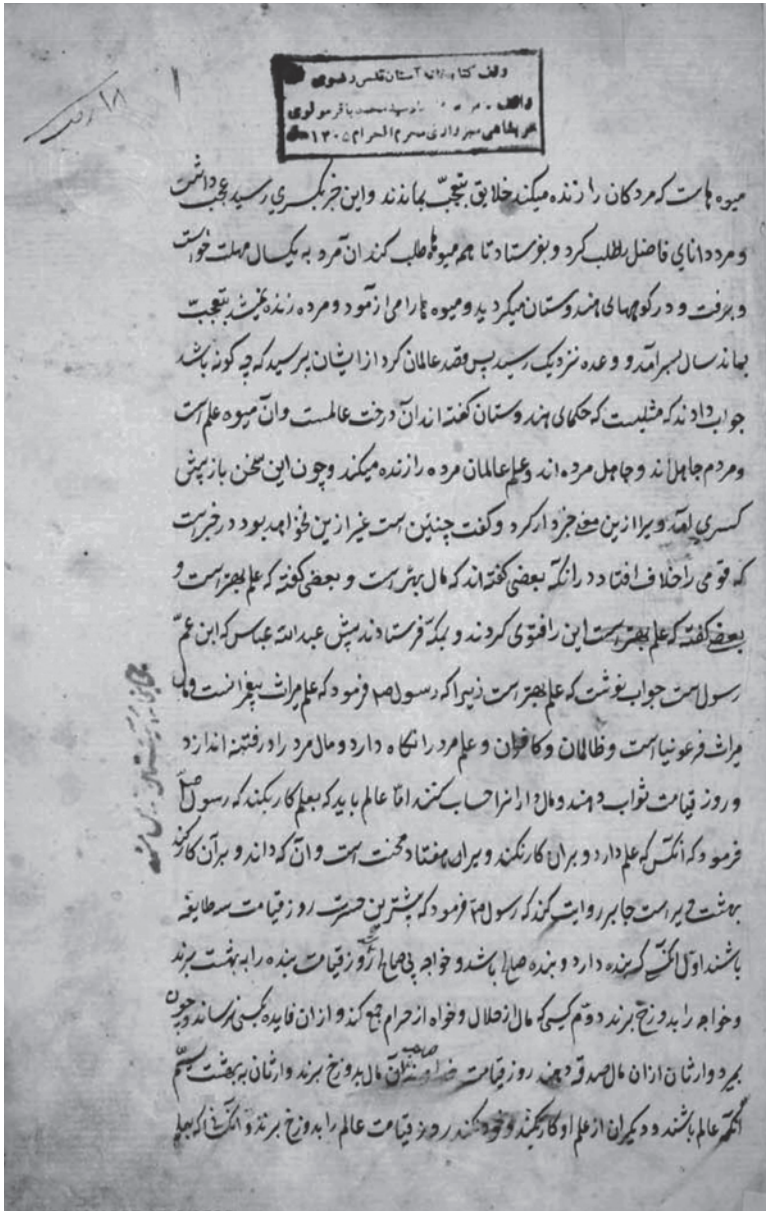 ۱۸ ورق
۱
وقف کتابخانه آستان قدس رضوی
واقف سید محمد باقر مولوی
عربشاهی سبزواری محرم الحرام ۱۳۰۵
میوه هاست که مردکان را زنده میکند خلایق بتعجبّ بماندند و این خبر بکسری رسید عجب داشت
و مرد دانای فاضل بطلب کرد و بفرستاد تا هم میوها طلب کند آن مرد به یکسال مهلت خواست
و برفت و در کوههای هندوستان میکردید و میوه ها را می ازمود و مرده زنده نمیشد بتعجبّ
بماند سال بسر آمد و وعده نزدیک رسید پس قصد عالمان کرد از ایشان بپرسید که چه کونه باشد
جواب دادند که مثلیست که حکمای هندوستان کفته اند آن درخت عالمست و آن میوه علم است
و مردم جاهل اند و جاهل مرده اند و علم عالمان مرده را زنده میکند و چون این سخن باز پیش
کسری آمد ویرا ازین معنی خبردار کرد و کفت چنین است غیر ازین نخواهد بود در خبر است
که قومی را خلاف افتاد در انکه بعضی کفته اند که مال بهتر است و بعضی کفته که علم بهتر است و
بعضی کفته که علم بهتر است این را فتوی کردند و بمکه فرستادند پیش عبدالله عباس که ابن عمّ
رسول است جواب نوشت که علم بهتر است زیرا که رسول صم فرمود که علم میراث پیغمبرانست و مال
میراث فرعونیا است و ظالمان و کافران و علم مرد را نکاه دارد و مال مرد را در فتنه اندازد
و روز قیامت ثواب دهند و مال دار انرا حساب کنند امّا عالم باید که بعلم کار بکند که رسول صلّ
فرمود که انکس که علم دارد و بران کار نکند ویرا هفتاد محنت است و آن که داند و بر آن کار کند
بهشت ویر است جابر روایت کند که رسول صم فرمود که بیشترین حسرت روز قیامت سه طایفه
باشند اوّل انکسی که بنده دارد و بنده صالح باشد و خواجه بی صالح روز قیامت بنده را به بهشت برند
و خواجه را بدوزخ برند دوّم کسی که مال از حلال و خواه از حرام جمع کند و از ان فایده بکسی نرساند و چون
بمیرد وارثان ازان مال صدقه دهند روز قیامت صاحب آن مال بدوزخ برند وارثان به بهشت سیّم
انکه عالم باشند و دیکران از علم او کار بکنند و خود نکند روز قیامت عالم را بدوزخ برند و انکسانرا که بعلم